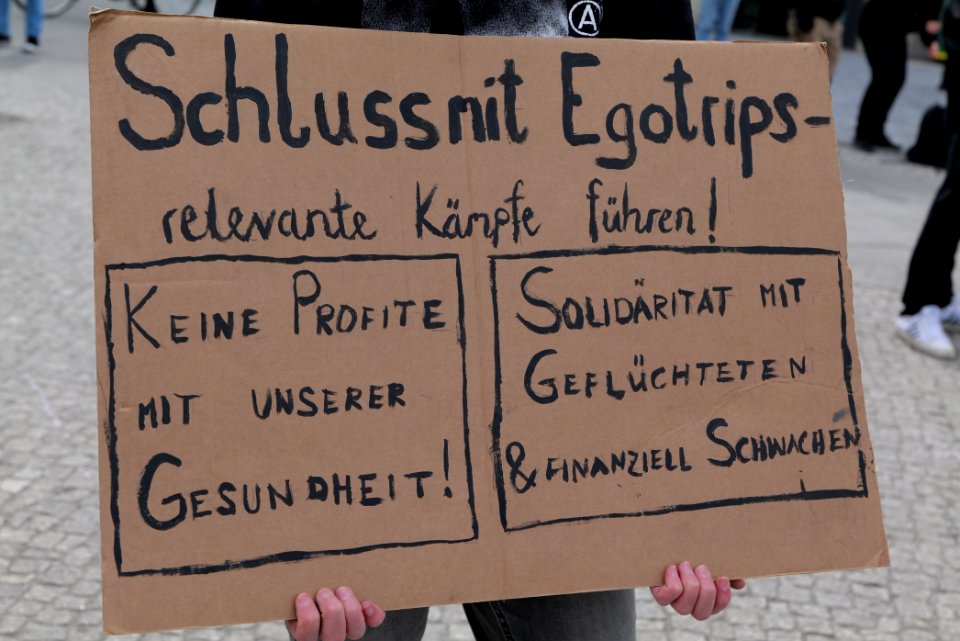 Ⓐ
Schluss mit Egotrips-
relevante Kämpfe führen!
KEINE PROFITE
MIT UNSERER
GESUNDHEIT!
SOLIDÄRITÄT MIT
GEFLÜCHTETEN
& FINANZIELL SCHWACHEN